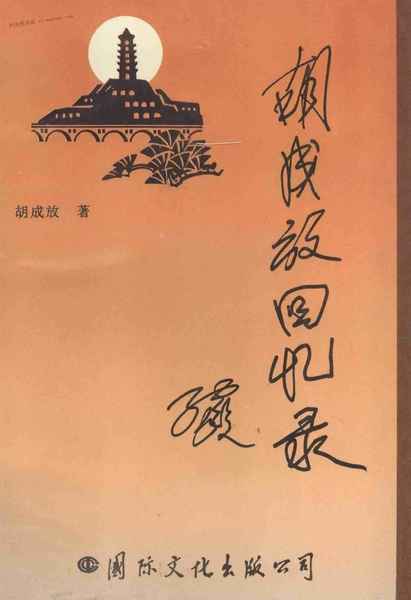 胡成放回忆录
胡成放 著
国际文化出版公司